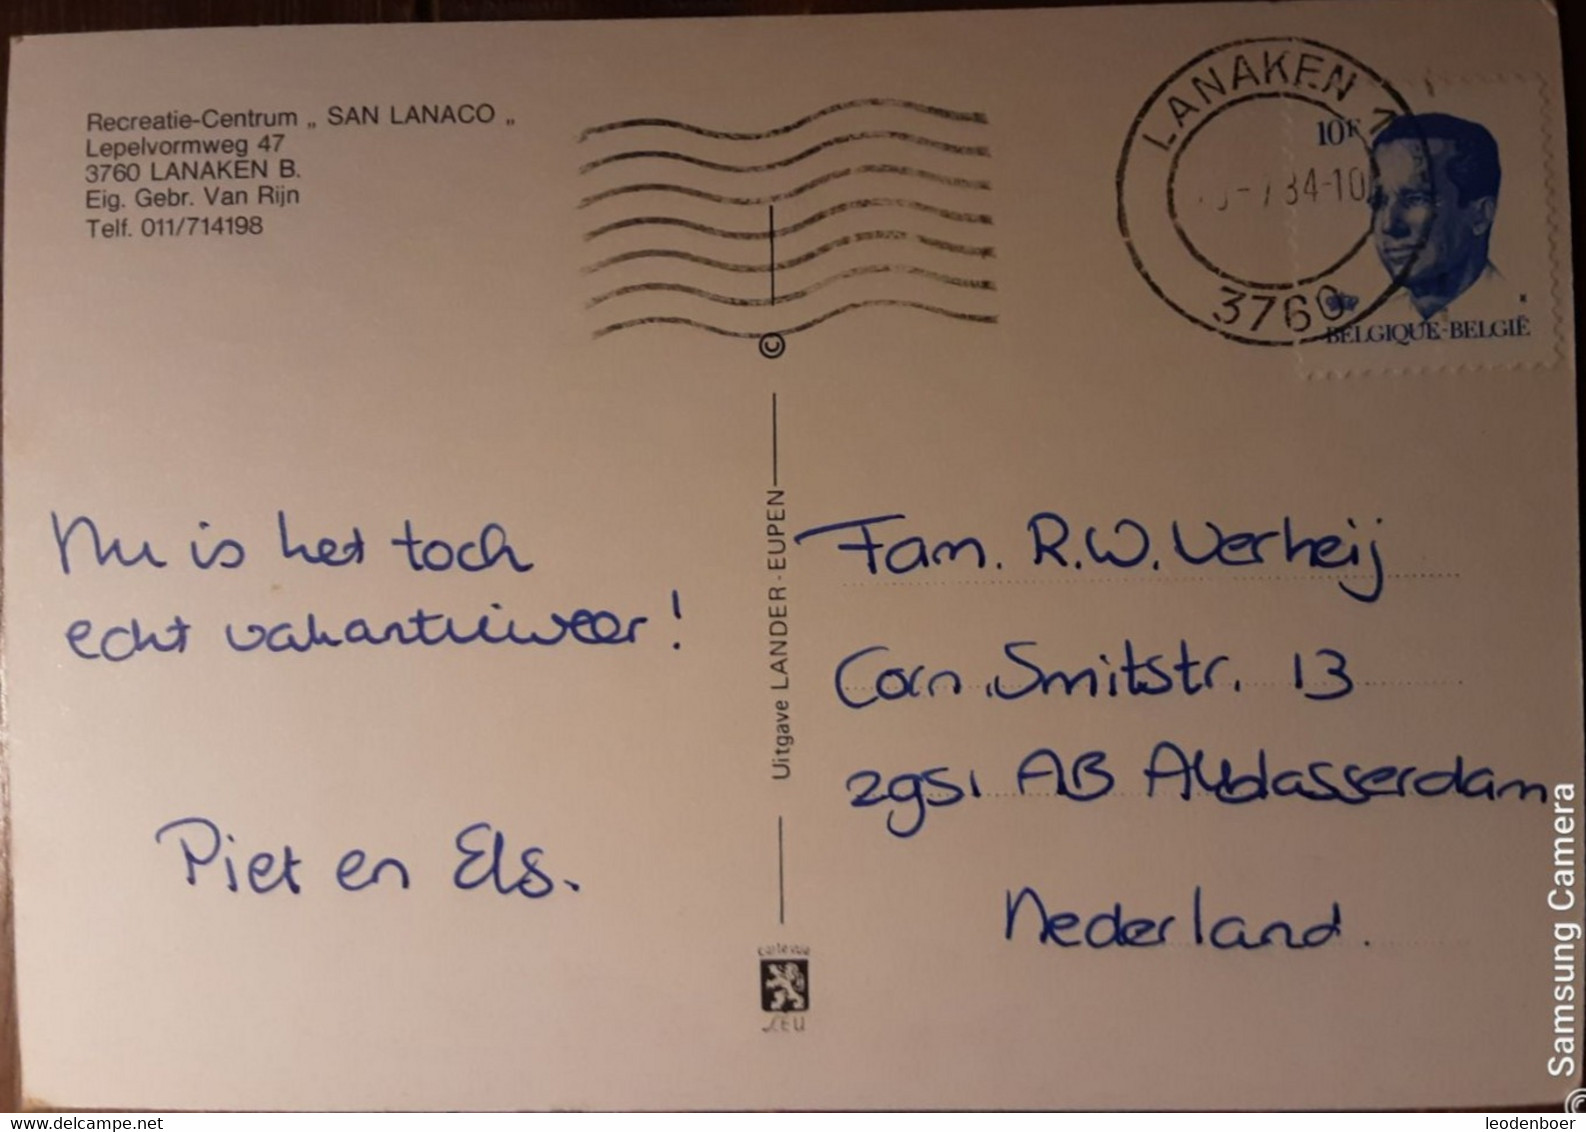 Recreatie-Centrum „ SAN LANACO „
Lepelvormweg 47
3760 LANAKEN B.
Eig. Gebr. Van Rijn
Telf. 011/714198
LANAKEN 1
7 84-10
3760
10F
BELGIQUE-BELGIË
©
Uitgave LANDER-EUPEN
Nu is het toch
echt vakantieweer!
Piet en Els.
Fam. R.W. Verheij
Corn. Smitstr. 13
2951 AB Alblasserdam
Nederland.
LEU
Samsung Camera
©
delcampe.net
leodenboer